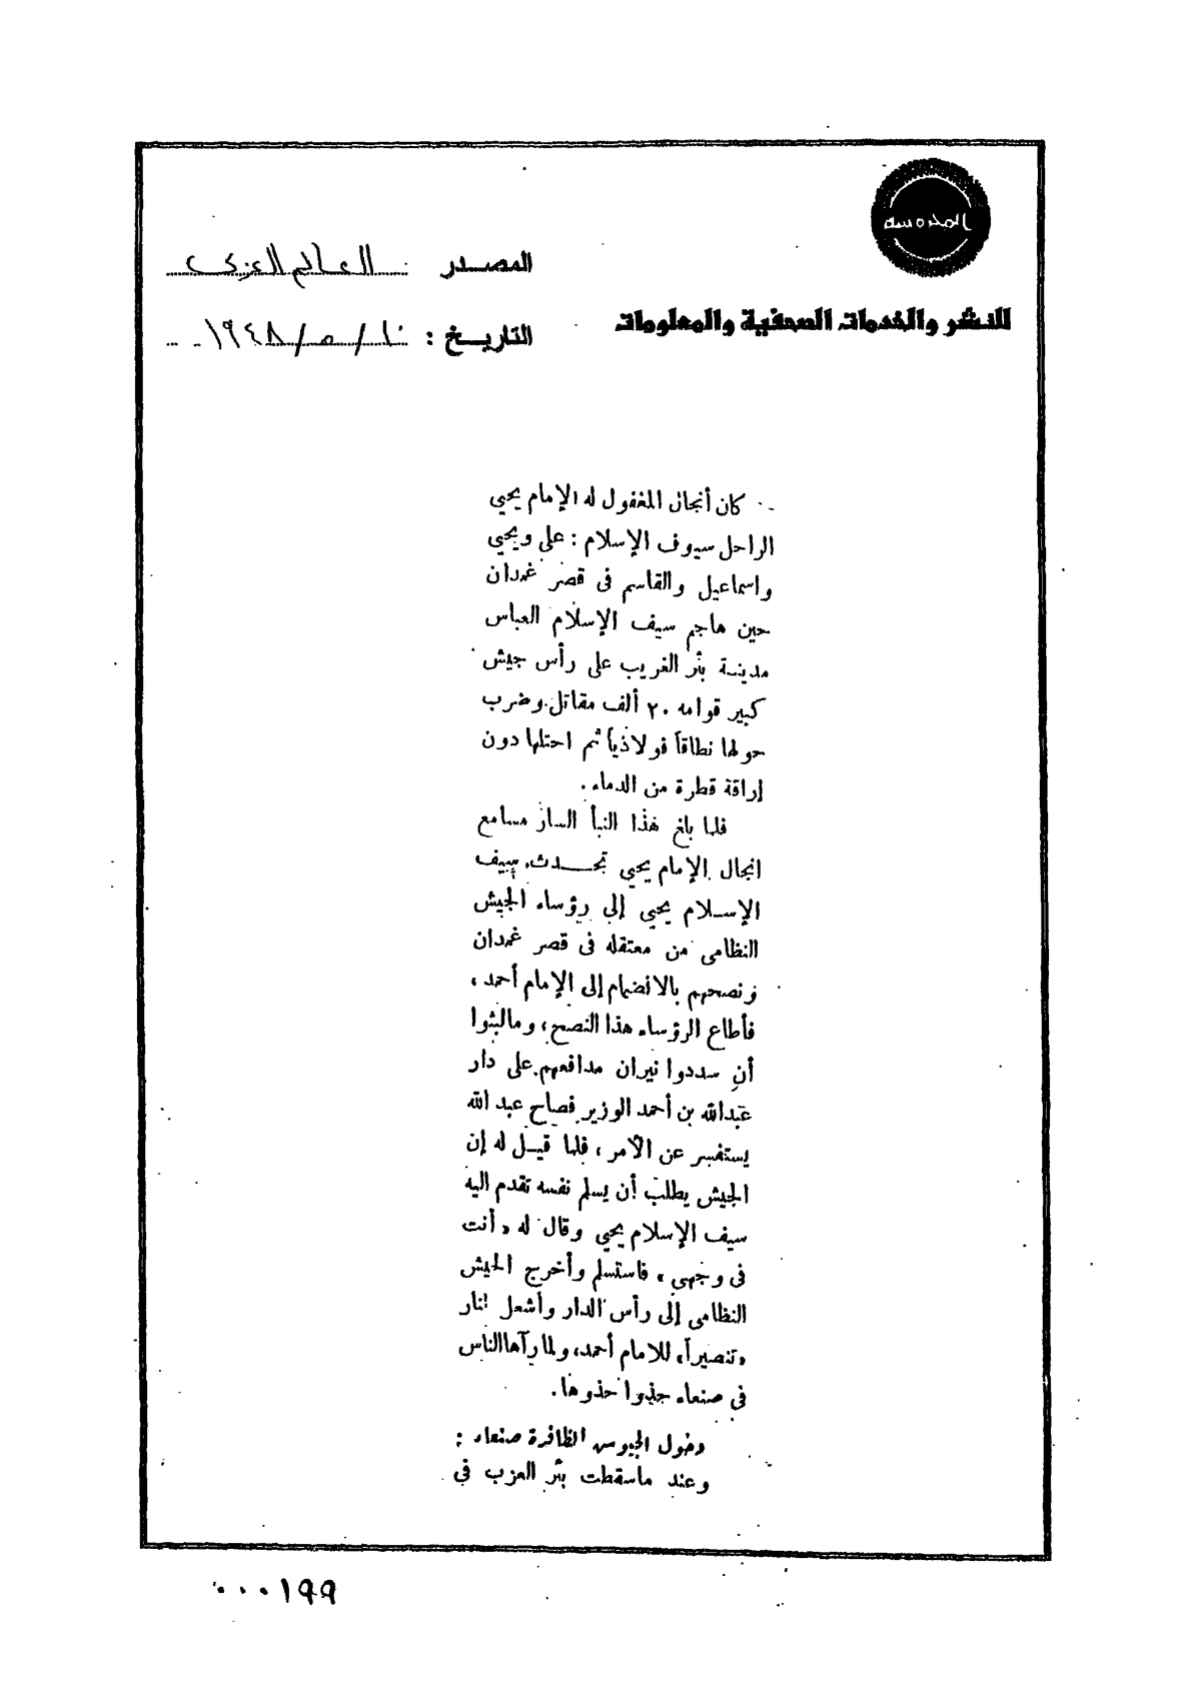 المحروسة
المصدر العالم العربى
للنشر والخدمات الصحفية والمعلومات
التاريخ : ١٠/٥/١٩٤٨
كان أنجال المغفول له الإمام يحيى
الراحل سيوف الإسلام : على ويحيى
واسماعيل والقاسم فى قصر غمدان
حين هاجم سيف الإسلام العباس
مدينة بئر الغريب على رأس جيش
كبير قوامه ٢٠ ألف مقاتل وضرب
حولها نطاقاً فولاذياً ثم احتلها دون
إراقة قطرة من الدماء .
فلما بلغ هذا النبأ السار مسامع
انجال الإمام يحيى تحدث سيف
الإسلام يحيى إلى رؤساء الجيش
النظامى من معتقله فى قصر غمدان
ونصحهم بالانضمام إلى الإمام أحمد ،
فأطاع الرؤساء هذا النصح ، ومالبثوا
أن سددوا نيران مدافعهم على دار
عبدالله بن أحمد الوزير فصاح عبد الله
يستفسر عن الأمر ، فلما قيل له إن
الجيش يطلب أن يسلم نفسه تقدم اليه
سيف الإسلام يحيى وقال له « أنت
فى وجهى » فاستسلم وأخرج الجيش
النظامى إلى رأس الدار وأشعل النار
« تنصيراً » للامام أحمد ، ولما رآها الناس
فى صنعاء حذوا حذوها .
دخول الجيوس الظافرة صنعاء :
وعند ماسقطت بئر العزب فى
٠٠٠١٩٩